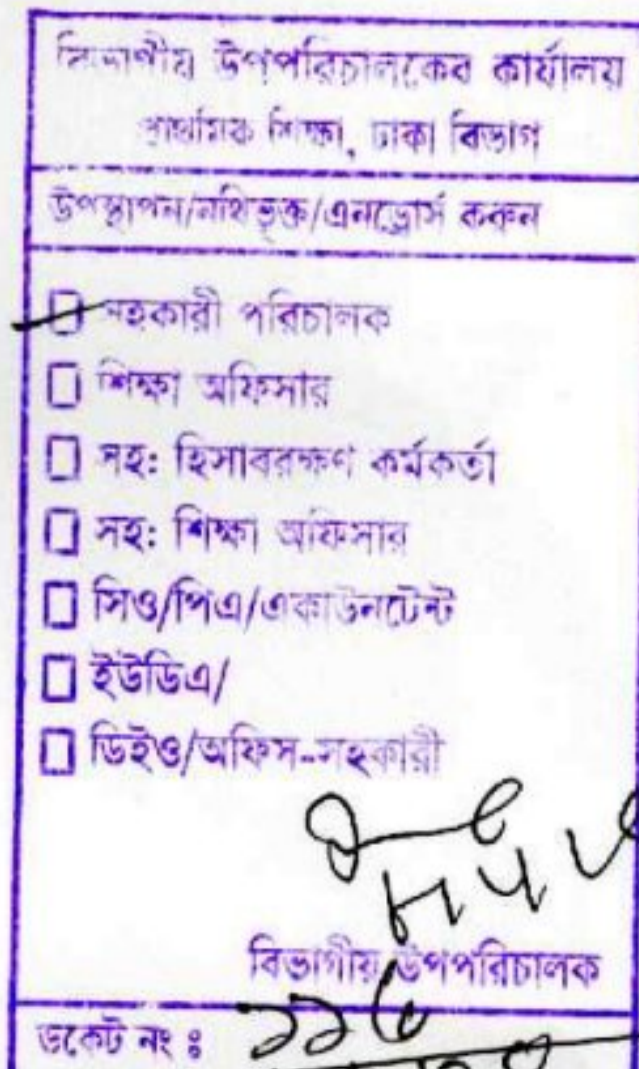 বিভাগীয় উপপরিচালকের কার্যালয়
প্রাথমিক শিক্ষা, ঢাকা বিভাগ
উপস্থাপন/নথিভুক্ত/এনডোর্স করুন
সহকারী পরিচালক
শিক্ষা অফিসার
সহ: হিসাবরক্ষণ কর্মকর্তা
সহ: শিক্ষা অফিসার
সিও/পিএ/একাউনটেন্ট
ইউডিএ/
ডিইও/অফিস-সহকারী
বিভাগীয় উপপরিচালক
ডকেট নং ঃ